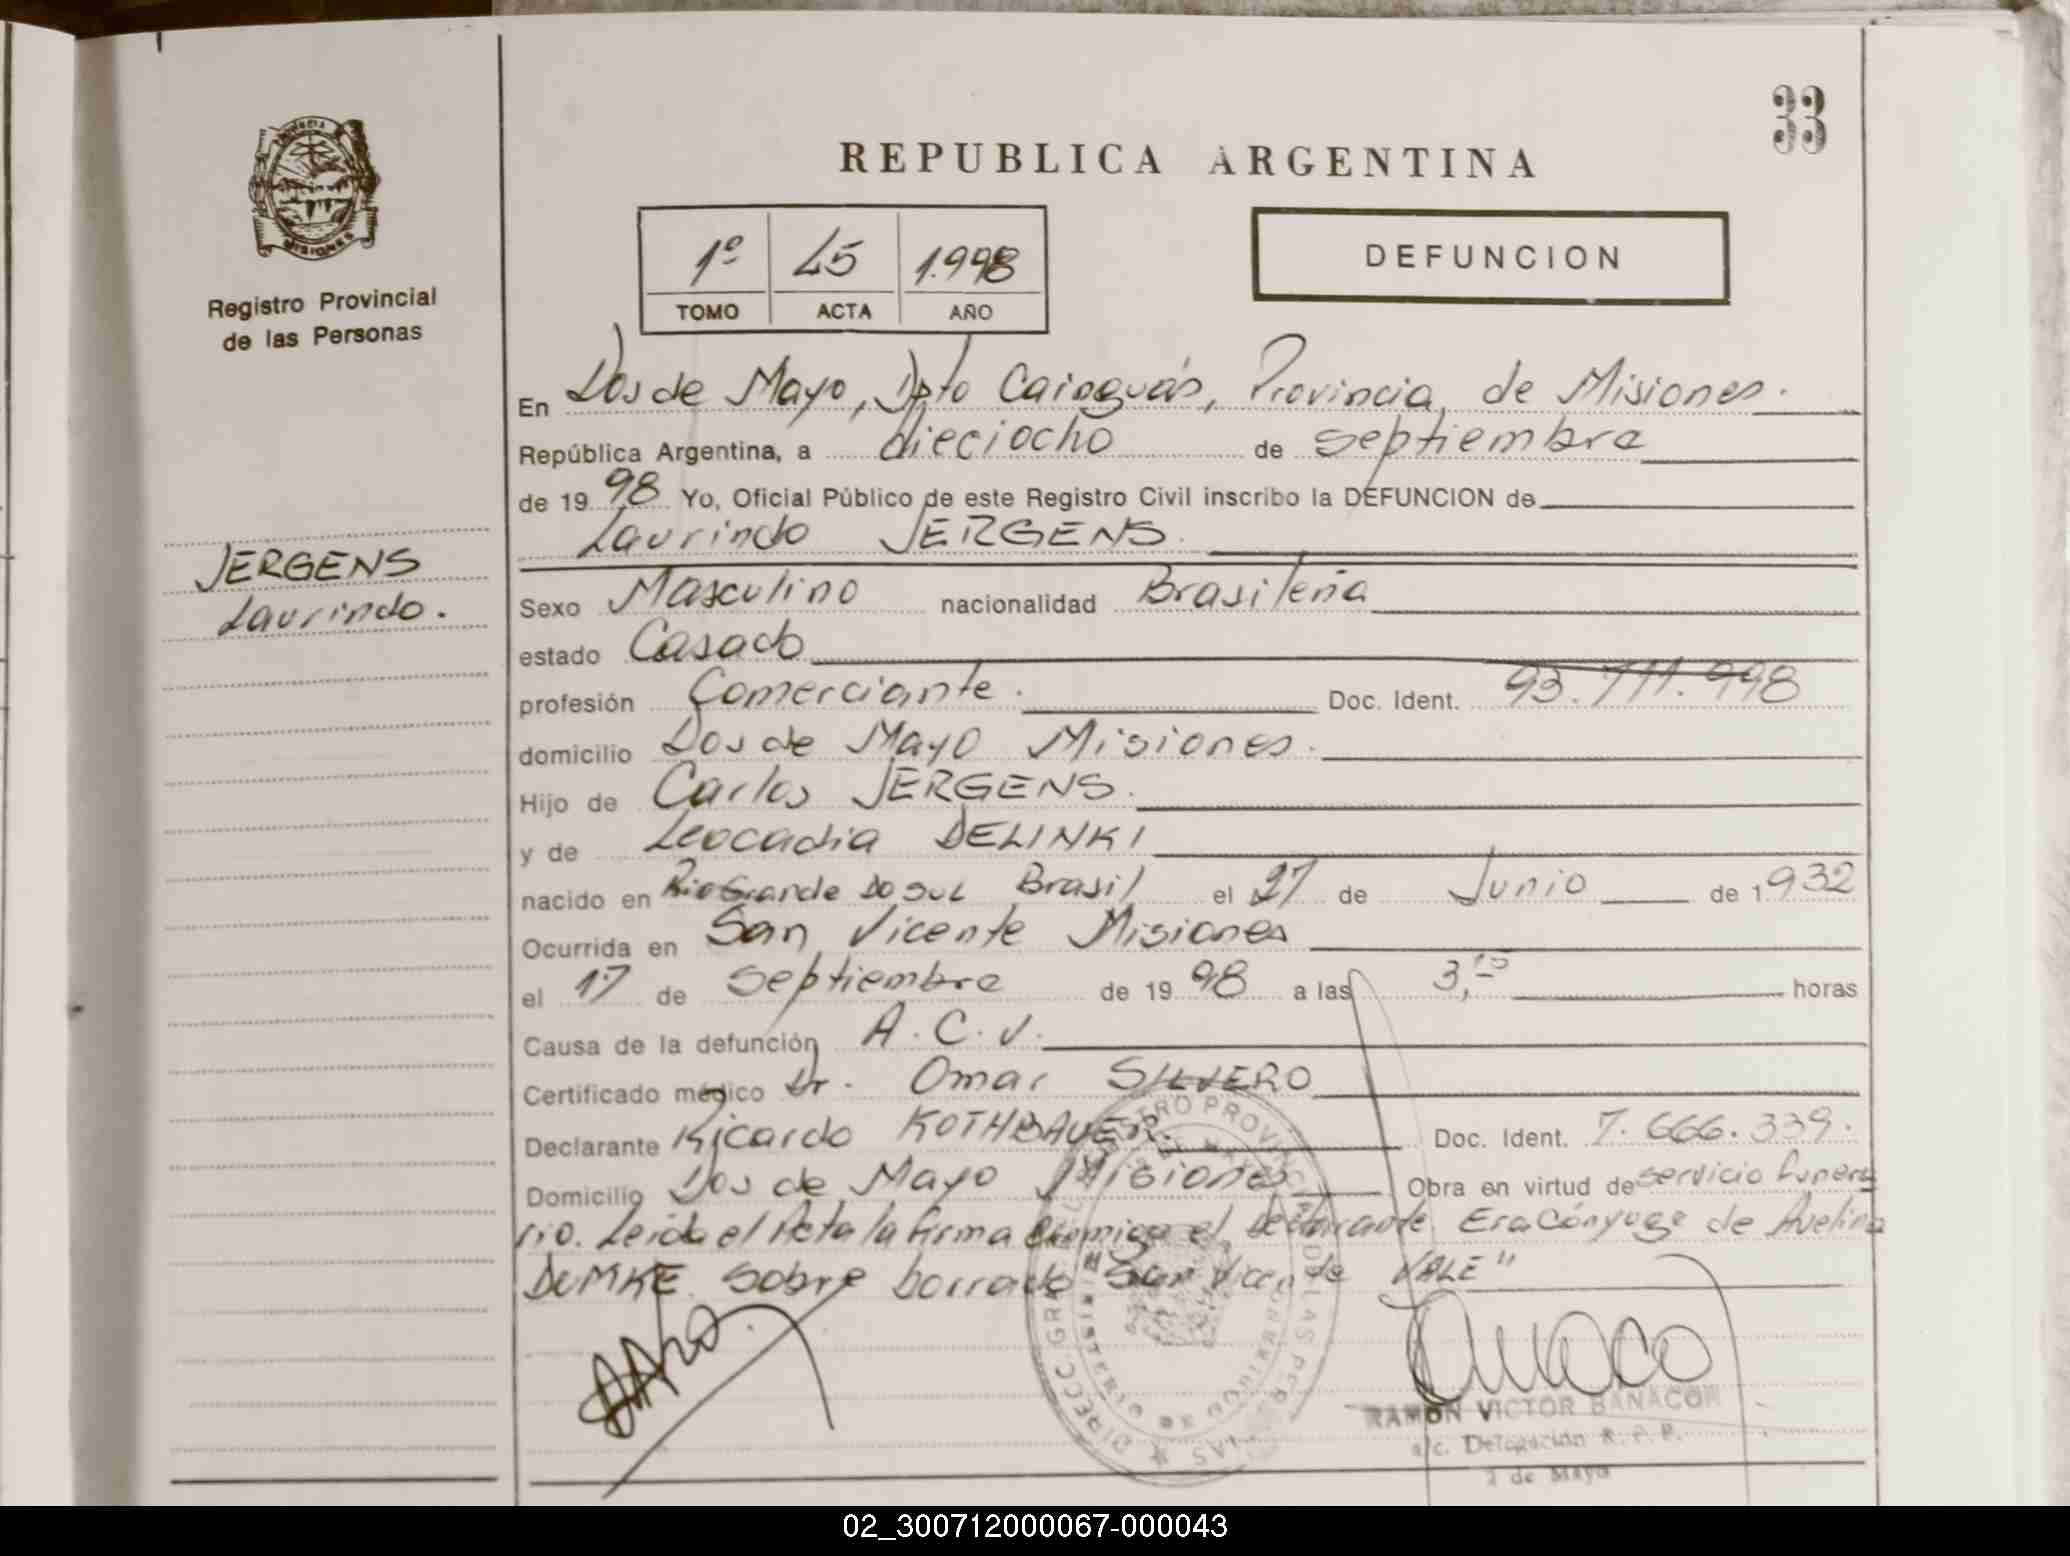 33
REPUBLICA ARGENTINA
MISIONES
Registro Provincial
de las Personas
1º 45 1.998
TOMO ACTA AÑO
DEFUNCION
JERGENS
Laurindo.
En Dos de Mayo, Dpto Cainguás, Provincia de Misiones.
República Argentina, a dieciocho de septiembre
de 19 98 Yo, Oficial Público de este Registro Civil inscribo la DEFUNCION de
Laurindo JERGENS.
Sexo Masculino nacionalidad Brasileña
estado Casado
profesión Comerciante. Doc. Ident. 93.711.998
domicilio Dos de Mayo Misiones.
Hijo de Carlos JERGENS.
y de Leocadia DELINKI
nacido en Rio Grande Do SUL Brasil el 27 de Junio de 1932
Ocurrida en San Vicente Misiones
el 17 de septiembre de 19 98 a las 3,15 horas
Causa de la defunción A.C.V.
Certificado médico Dr. Omar SILVERO
Declarante Ricardo KOTHBAUER. Doc. Ident. 7.666.339.
Domicilio Dos de Mayo Misiones Obra en virtud de servicio funera
rio. Leida el Acta la firma conmigo el declarante. Era Cónyuge de Avelina
DUMKE. Sobre borrado San Vicente VALE"
RAMON VICTOR BANACOR
a/c. Delegación R. P. P.
2 de Mayo
02_300712000067-000043